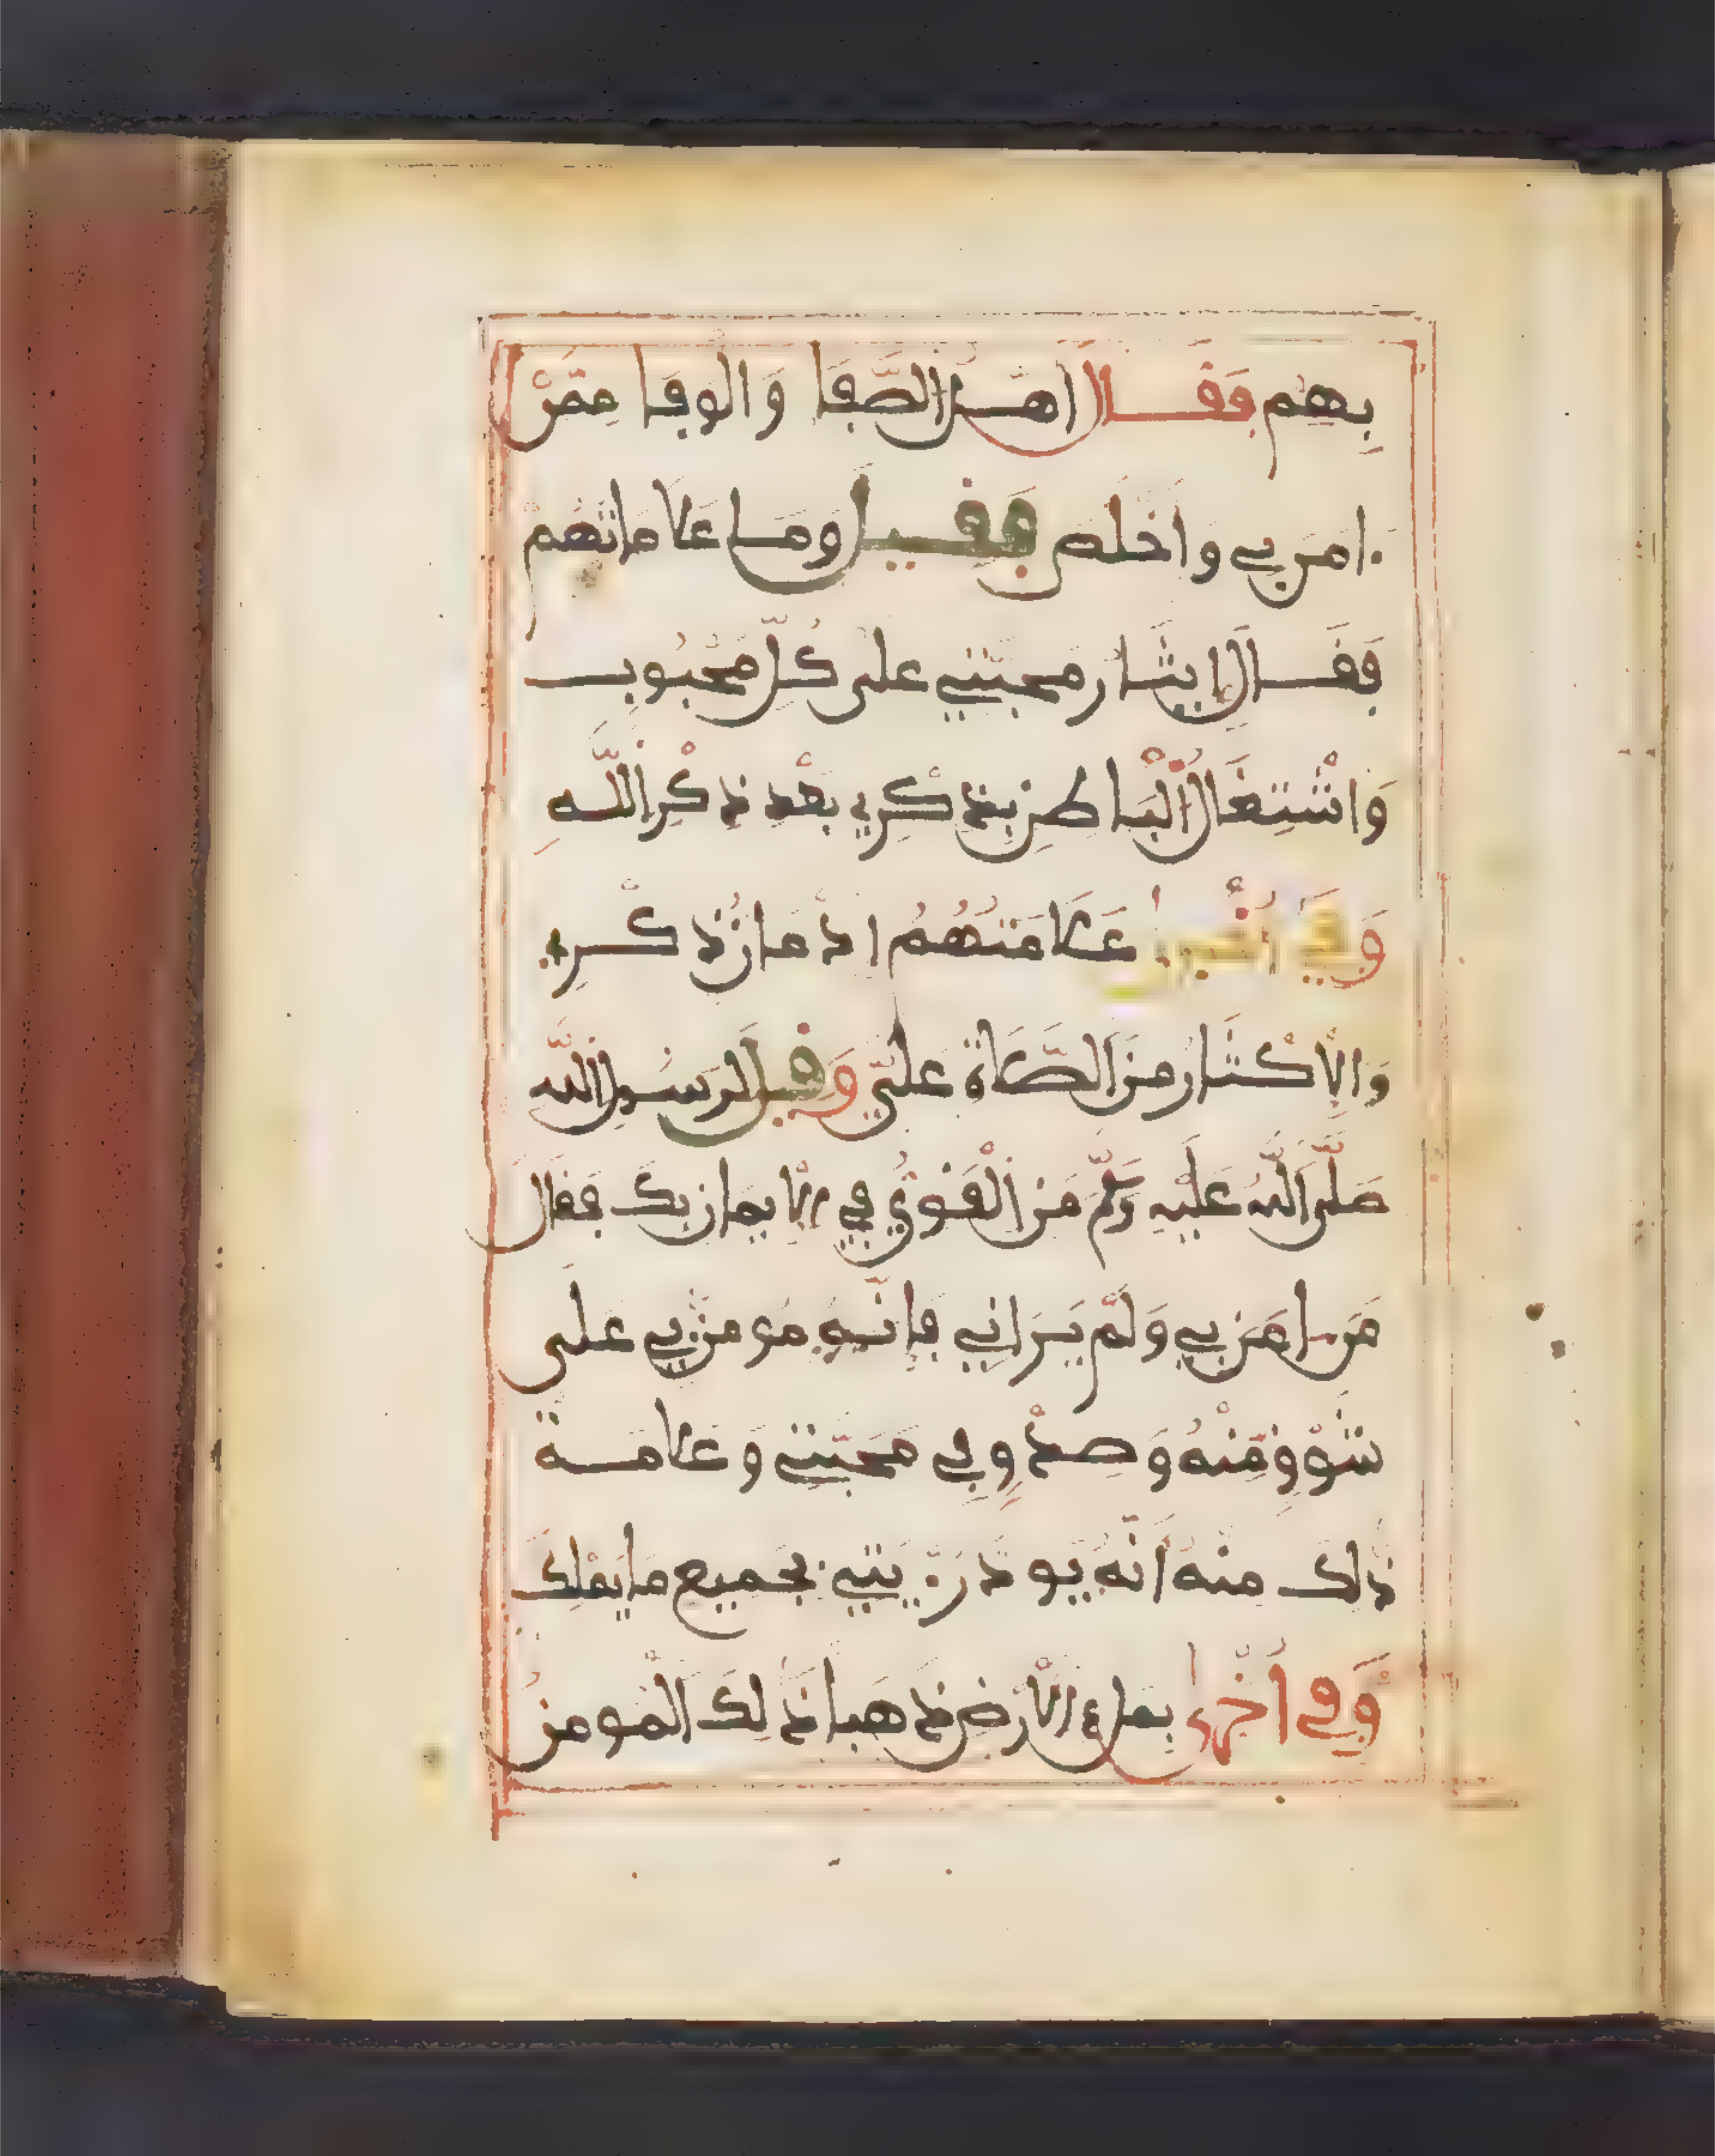 بِهِم فَقَالَ اَهْلُ الصَّفَا وَالْوَفَا مِمَّنْ
ءامَن بِي وَأَخْلَصَ فَقِيلَ وَمَا عَلَامَاتُهُمْ
فَقَالَ اِيثَارُ مَحَبَّتِي عَلَى كُلِّ مَحْبُوبٍ
وَاشْتِغَالُ الْبَاطِنِ بِذِكْرِي بَعْدَ ذِكْرِ اللَّهِ
وَفِي أُخْرَى عَلَامَتُهُمُ ادْمَانُ ذِكْرِي
وَالِاكْثَارُ مِنَ الصَّلَاةِ عَلَيَّ وَقِيلَ لِرَسُولِ اللَّهِ
صَلَّى اللَّهُ عَلَيْهِ وَسَلَّمَ مَنِ الْقَوِيُّ فِي الْاِيمَانِ بِكَ فَقَالَ
مَن ـامَنَ بِي وَلَمْ يَرَانِي فَإِنَّهُ مُومِنٌ بِي عَلَى
شَوْقٍ مِّنْهُ وَصِدْقٍ فِي مَحَبَّتِي وَعَلَامَةُ
ذَلِكَ مِنْهُ أَنَّهُ يَوَدُّ رُؤْيَتِي بِجَمِيعِ مَا يَمْلِكُ
وَفِي أُخْرَى بِمِلْءِ الْأَرْضِ ذَهَبًا ذَلِكَ الْمُومِنُ